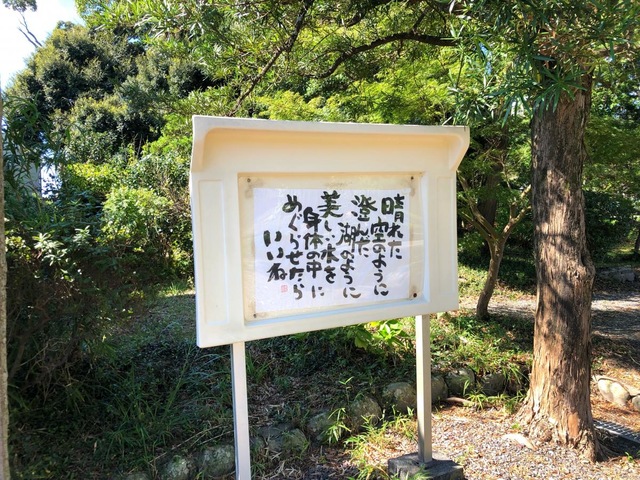 晴れた
空のように
澄んだ
湖のように
美しい水を
身体の中に
めぐらせたら
いいね